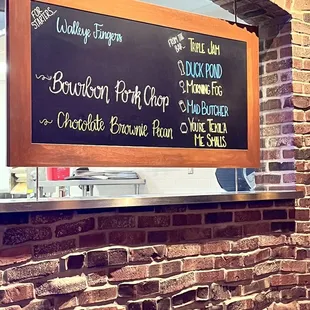 FOR
STARTERS
Walleye Fingers
Bourbon Pork Chop
Chocolate Brownie Pecan
FROM THE
BAR
TRIPLE JAM
DUCK POND
MORNING
FOG
MAD BUTCHER
YOU'RE TEKILA
ME SMALLS